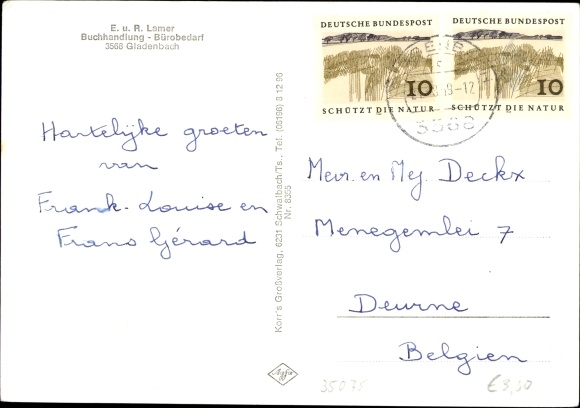 E. u. R. Lamer
Buchhandlung - Bürobedarf
3568 Gladenbach
DEUTSCHE BUNDESPOST
10
SCHÜTZT DIE NATUR
DEUTSCHE BUNDESPOST
10
SCHÜTZT DIE NATUR
3568
Hartelijke groeten
van
Frank-Louise en
Frans Gérard
Korr's Großverlag, 6231 Schwalbach/Ts., Tel. (06196) 8 12 96
Nr. 8355
Mevr. en Mej. Deckx
Menegemlei 7
Deurne
Belgien
Agfa
35075
€8,50